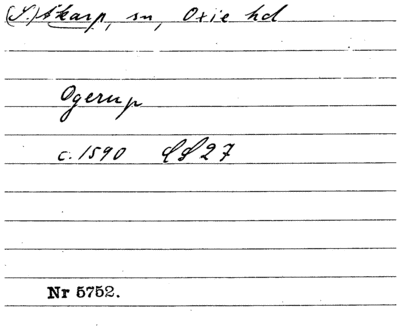 (S.) Åkarp, sn, Oxie hd
Ogerup
c. 1590 LS 27
Nr 5752.